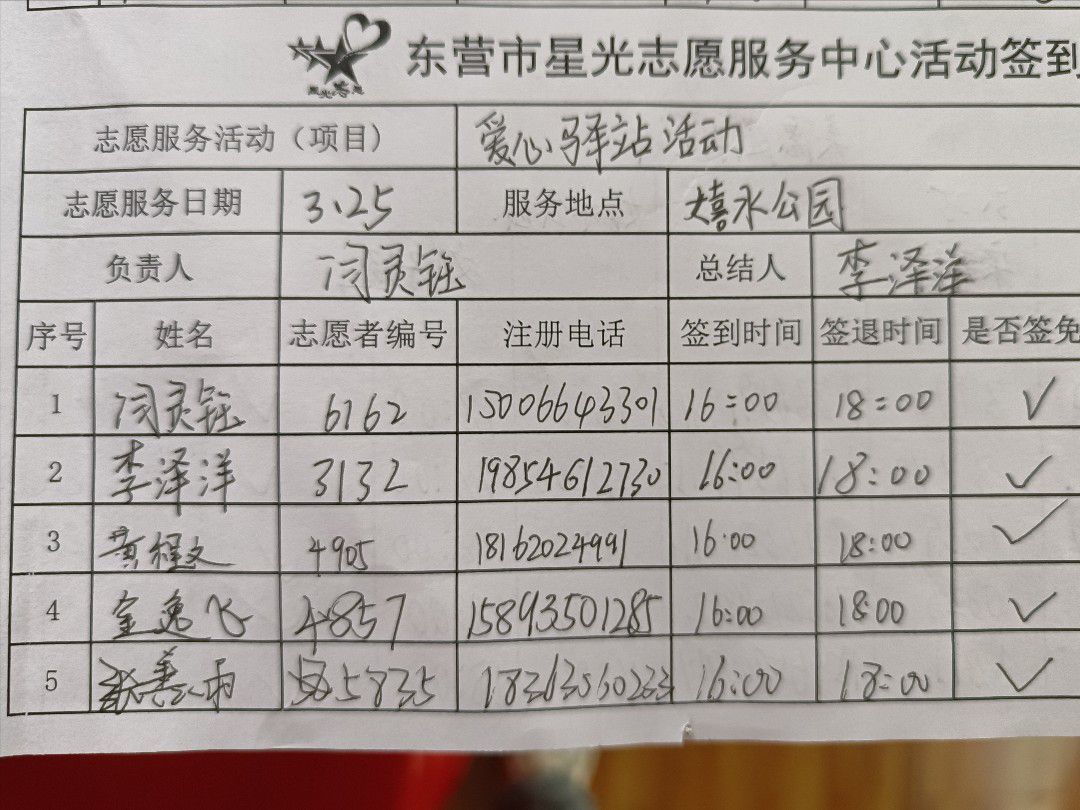 东营市星光志愿服务中心活动签到
志愿服务活动（项目） 爱心驿站活动
志愿服务日期 3.25 服务地点 嬉水公园
负责人 闫灵钰 总结人 李泽洋
序号 姓名 志愿者编号 注册电话 签到时间 签退时间 是否签免
1 闫灵钰 6162 15006643301 16:00 18:00 ✓
2 李泽洋 3132 19854612730 16:00 18:00 ✓
3 黄程文 4905 18162024991 16:00 18:00 ✓
4 金逸飞 4857 15893501285 16:00 18:00 ✓
5 善雨 5835 16:00 18:00 ✓